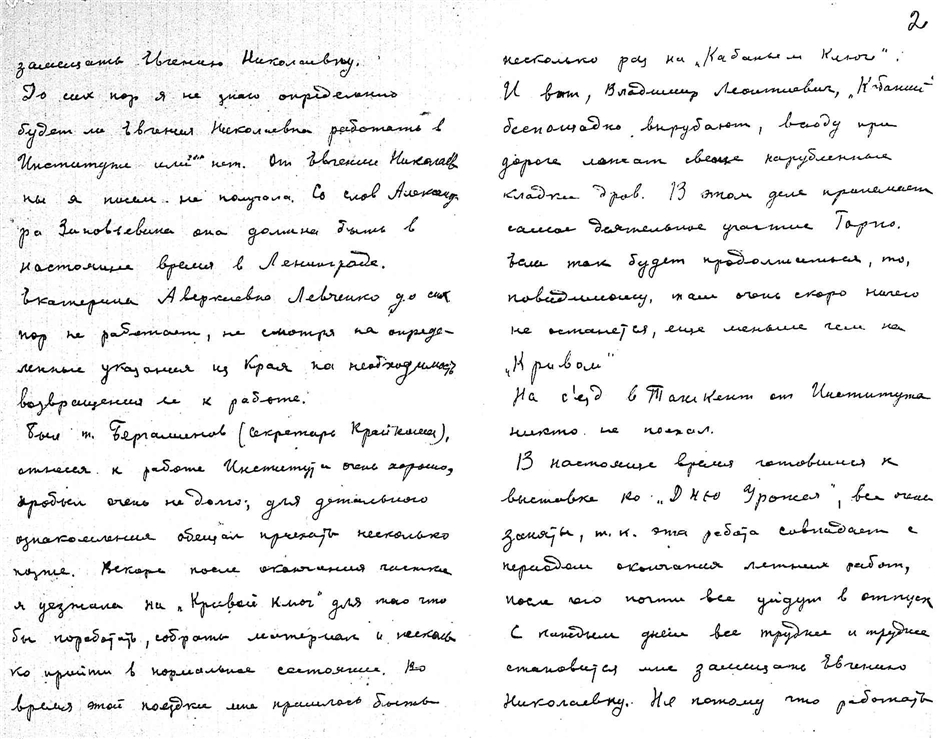 2
замещать Евгению Николаевну.
До сих пор я не знаю определенно
будет ли Евгения Николаевна работать в
Институте или нет. От Евгении Николаев
ны я писем не получала. Со слов Александ
ра Зиновьевича она должна быть в
настоящее время в Ленинграде.
Екатерина Аверкиевна Левченко до сих
пор не работает, не смотря на опреде-
ленные указания из Края на необходимость
возвращения ее к работе.
Был т. Бергавинов (секретарь Крайкома),
отнесся к работе Института очень хорошо,
пробыл очень не долго; для детального
ознакомления обещал приехать несколько
позже. Вскоре после окончания чистки
я уезжала на „Кривой ключ" для того что
бы поработать, собрать материал и несколь
ко прийти в нормальное состояние. Во
время этой поездки мне пришлось быть
несколько раз на „Кабаньем Ключе".
И вот, Владимир Леонтиевич, „Кабаний"
беспощадно вырубают, всюду при
дороге лежат свеже нарубленные
кладки дров. В этом деле принемает
самое деятельное участие Горпо.
Если так будет продолжаться, то,
повидимому, там очень скоро ничего
не останется, еще меньше чем на
„Кривом"
На с'езд в Ташкент от Института
никто не поехал.
В настоящее время готовимся к
выставке ко „Дню Урожая", все очень
заняты, т.к. эта работа совпадает с
периодом окончания летних работ,
после чего почти все уйдут в отпуск
С каждым днем все труднее и труднее
становится мне замещать Евгению
Николаевну. Не потому что работать